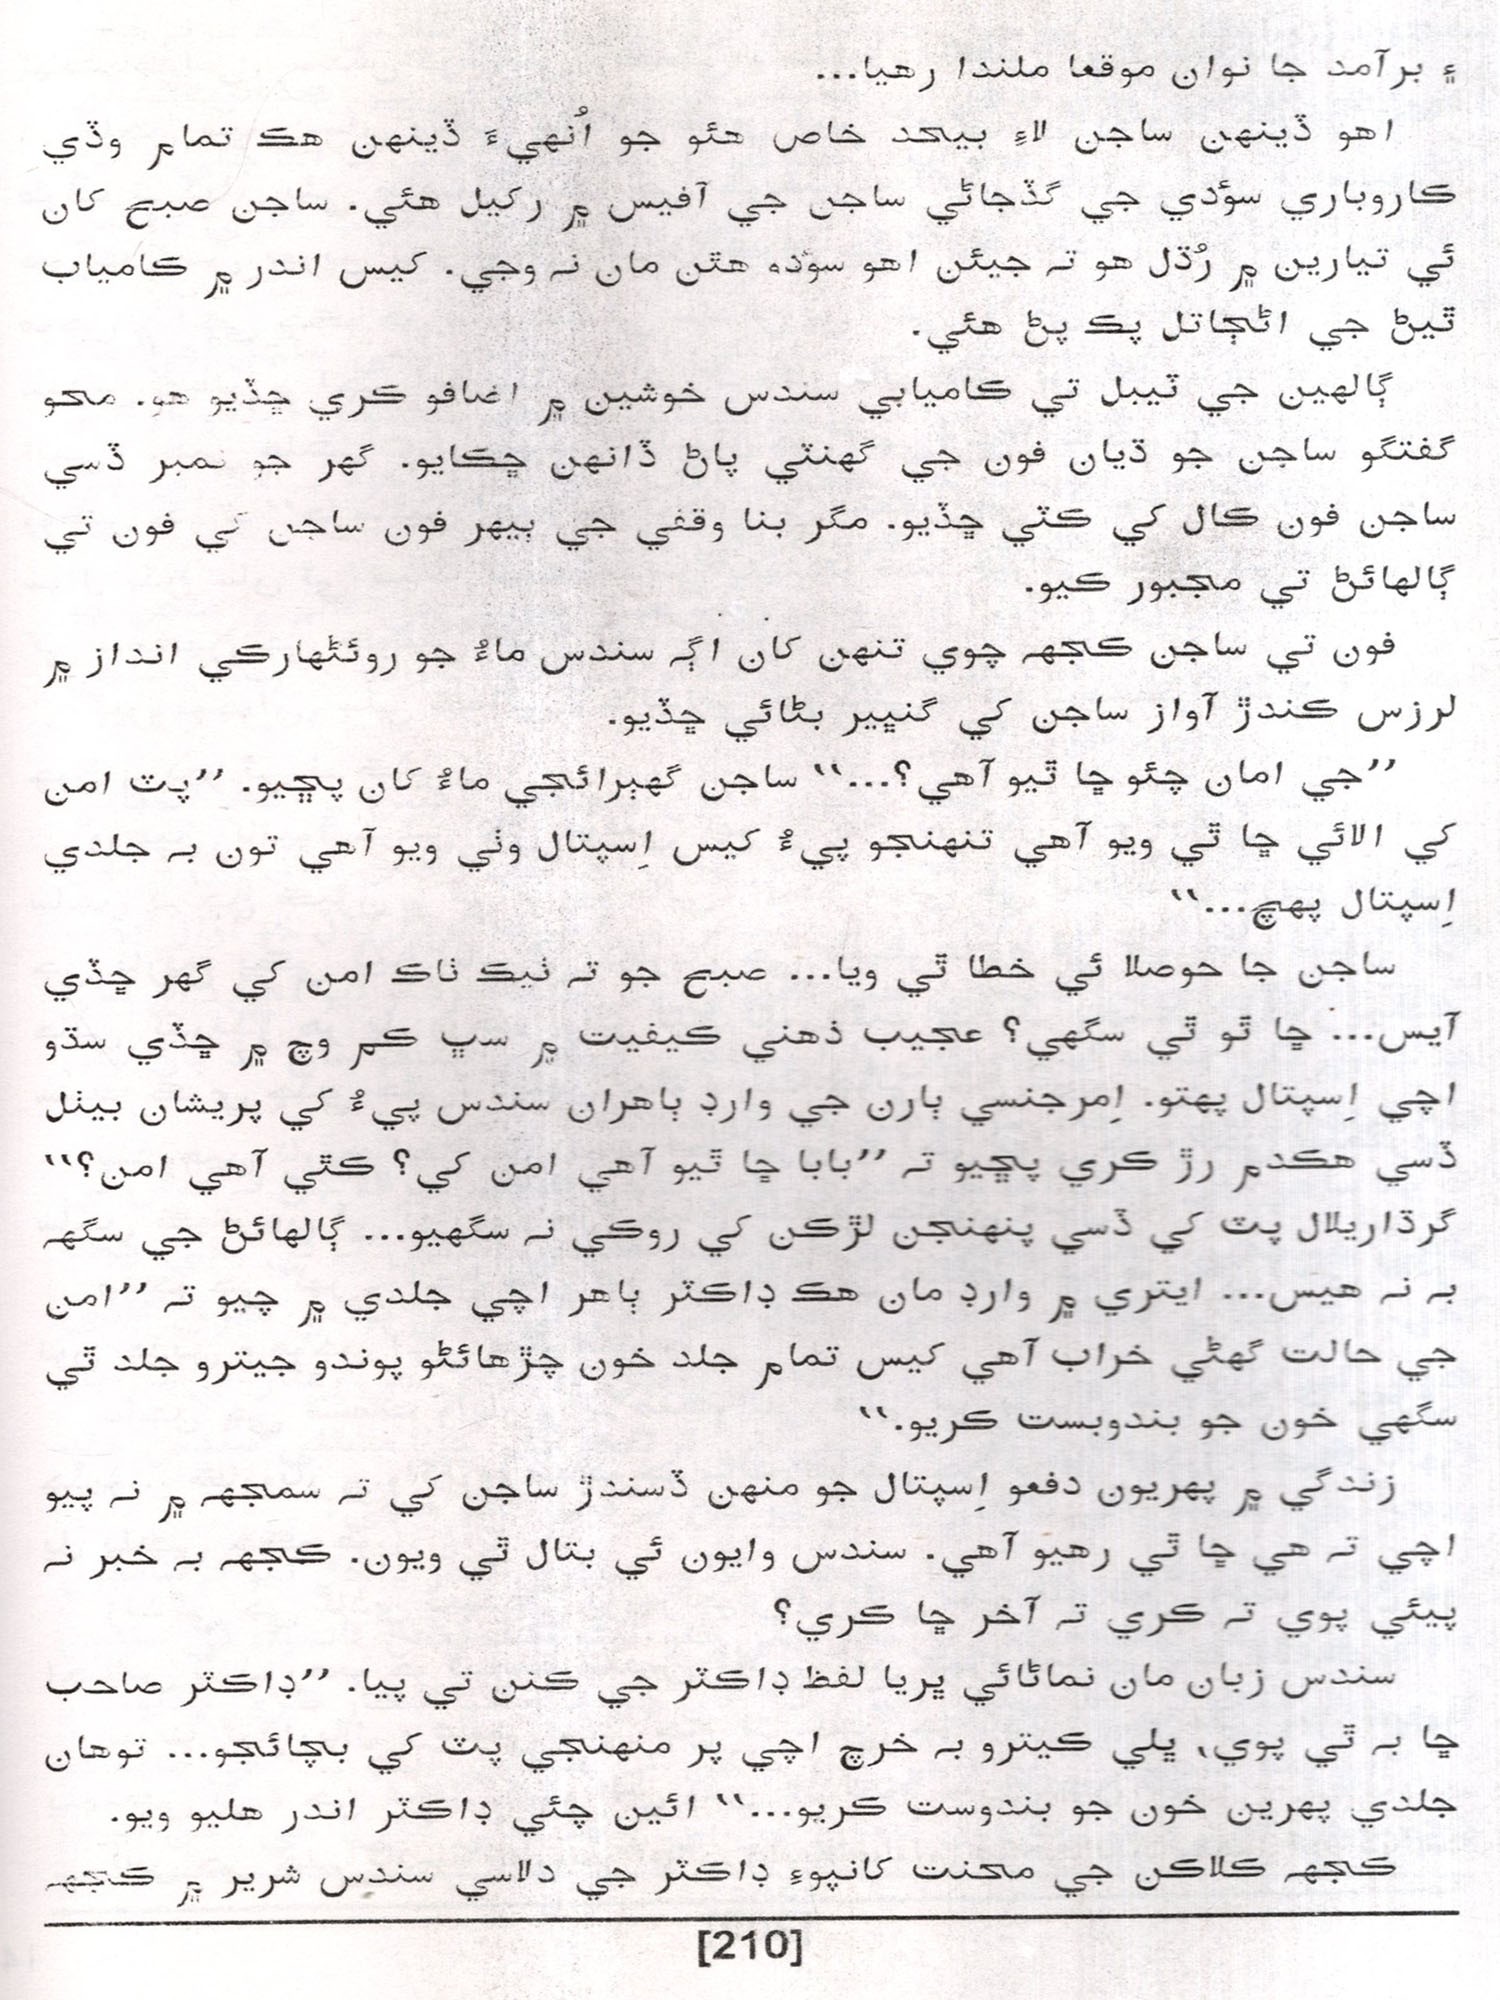 ۽ برآمد جا نوان موقعا ملندا رهيا...
اهو ڏينهن ساجن لاءِ بيحد خاص هئو جو اُنهيءَ ڏينهن هڪ تمام وڏي
ڪاروباري سؤدي جي گڏجاڻي ساجن جي آفيس ۾ رکيل هئي. ساجن صبح کان
ئي تيارين ۾ رُڌل هو تہ جيئن اهو سؤدہ هٿن مان نہ وڃي. کيس اندر ۾ ڪامياب
ٿيڻ جي اڻڄاتل پڪ پڻ هئي.
ڳالهين جي ٽيبل تي ڪاميابي سندس خوشين ۾ اضافو ڪري ڇڏيو هو. محو
گفتگو ساجن جو ڌيان فون جي گهنٽي پاڻ ڏانهن ڇڪايو. گهر جو نمبر ڏسي
ساجن فون ڪال کي ڪٽي ڇڏيو. مگر بنا وقفي جي ٻيهر فون ساجن کي فون تي
ڳالهائڻ تي مجبور ڪيو.
فون تي ساجن ڪجهہ چوي تنهن کان اڳہ سندس ماءُ جو روئڻهارڪي انداز ۾
لرزس ڪندڙ آواز ساجن کي گنڀير بڻائي ڇڏيو.
’’جي امان چئو ڇا ٿيو آهي؟...‘‘ ساجن گهٻرائجي ماءُ کان پڇيو. ’’پٽ امن
کي الائي ڇا ٿي ويو آهي تنهنجو پيءُ کيس اِسپتال وٺي ويو آهي تون بہ جلدي
اِسپتال پهچ...‘‘
ساجن جا حوصلا ئي خطا ٿي ويا... صبح جو تہ ٺيڪ ٺاڪ امن کي گهر ڇڏي
آيس... ڇا ٿو ٿي سگهي؟ عجيب ذهني ڪيفيت ۾ سڀ ڪم وچ ۾ ڇڏي سڌو
اچي اِسپتال پهتو. اِمرجنسي ٻارن جي وارڊ ٻاهران سندس پيءُ کي پريشان بيٺل
ڏسي هڪدم رڙ ڪري پڇيو تہ ’’بابا ڇا ٿيو آهي امن کي؟ ڪٿي آهي امن؟‘‘
گرڌاريلال پٽ کي ڏسي پنهنجن لڙڪن کي روڪي نہ سگهيو... ڳالهائڻ جي سگهہ
بہ نہ هيس... ايتري ۾ وارڊ مان هڪ ڊاڪٽر ٻاهر اچي جلدي ۾ چيو تہ ’’امن
جي حالت گهڻي خراب آهي کيس تمام جلد خون چڙهائڻو پوندو جيترو جلد ٿي
سگهي خون جو بندوبست ڪريو.‘‘
زندگي ۾ پهريون دفعو اِسپتال جو منهن ڏسندڙ ساجن کي تہ سمجهہ ۾ نہ پيو
اچي تہ هي ڇا ٿي رهيو آهي. سندس وايون ئي بتال ٿي ويون. ڪجهہ بہ خبر نہ
پيئي پوي تہ ڪري تہ آخر ڇا ڪري؟
سندس زبان مان نماڻائي ڀريا لفظ ڊاڪٽر جي ڪنن تي پيا. ’’ڊاڪٽر صاحب
ڇا بہ ٿي پوي، ڀلي ڪيترو بہ خرچ اچي پر منهنجي پٽ کي بچائجو... توهان
جلدي پهرين خون جو بندوست ڪريو...‘‘ ائين چئي ڊاڪٽر اندر هليو ويو.
ڪجهہ ڪلاڪن جي محنت کانپوءِ ڊاڪٽر جي دلاسي سندس شرير ۾ ڪجهہ
[210]